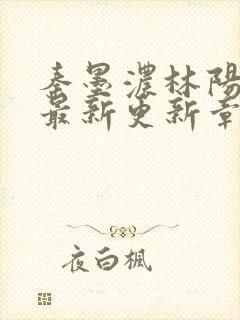 秦墨濃林陽
最新更新章
夜白楓